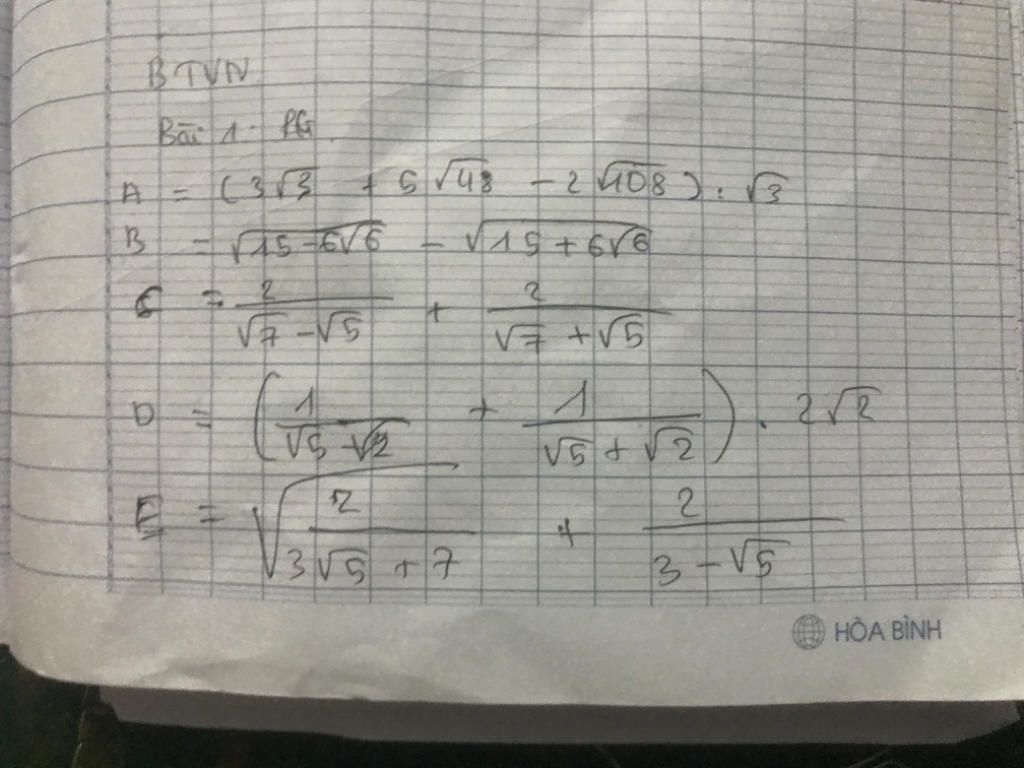 BTVN
Bài 1. RG
A = (3√3 + 5√48 - 2√108) : √3
B = √(15-6√6) - √(15+6√6)
C = 2/(√7-√5) + 2/(√7+√5)
D = (1/(√5-√2) + 1/(√5+√2)) . 2√2
E = √(2/(3√5+7)) + 2/(3-√5)
HÒA BÌNH